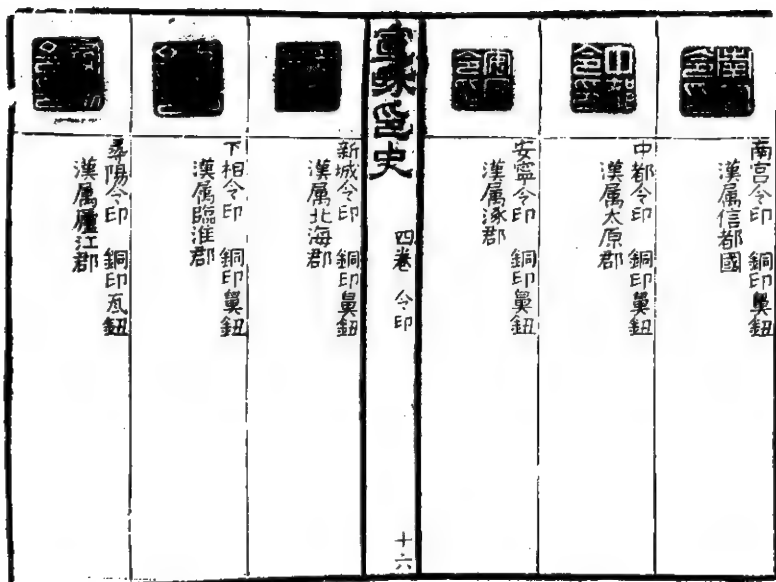 南宮令印　銅印鼻鈕
漢属信都國
中都令印　銅印鼻鈕
漢属太原郡
安寧令印　銅印鼻鈕
漢属涿郡
宣和印史　四卷　令印　十六
新城令印　銅印鼻鈕
漢属北海郡
下相令印　銅印鼻鈕
漢属臨淮郡
尋陽令印　銅印瓦鈕
漢属廬江郡